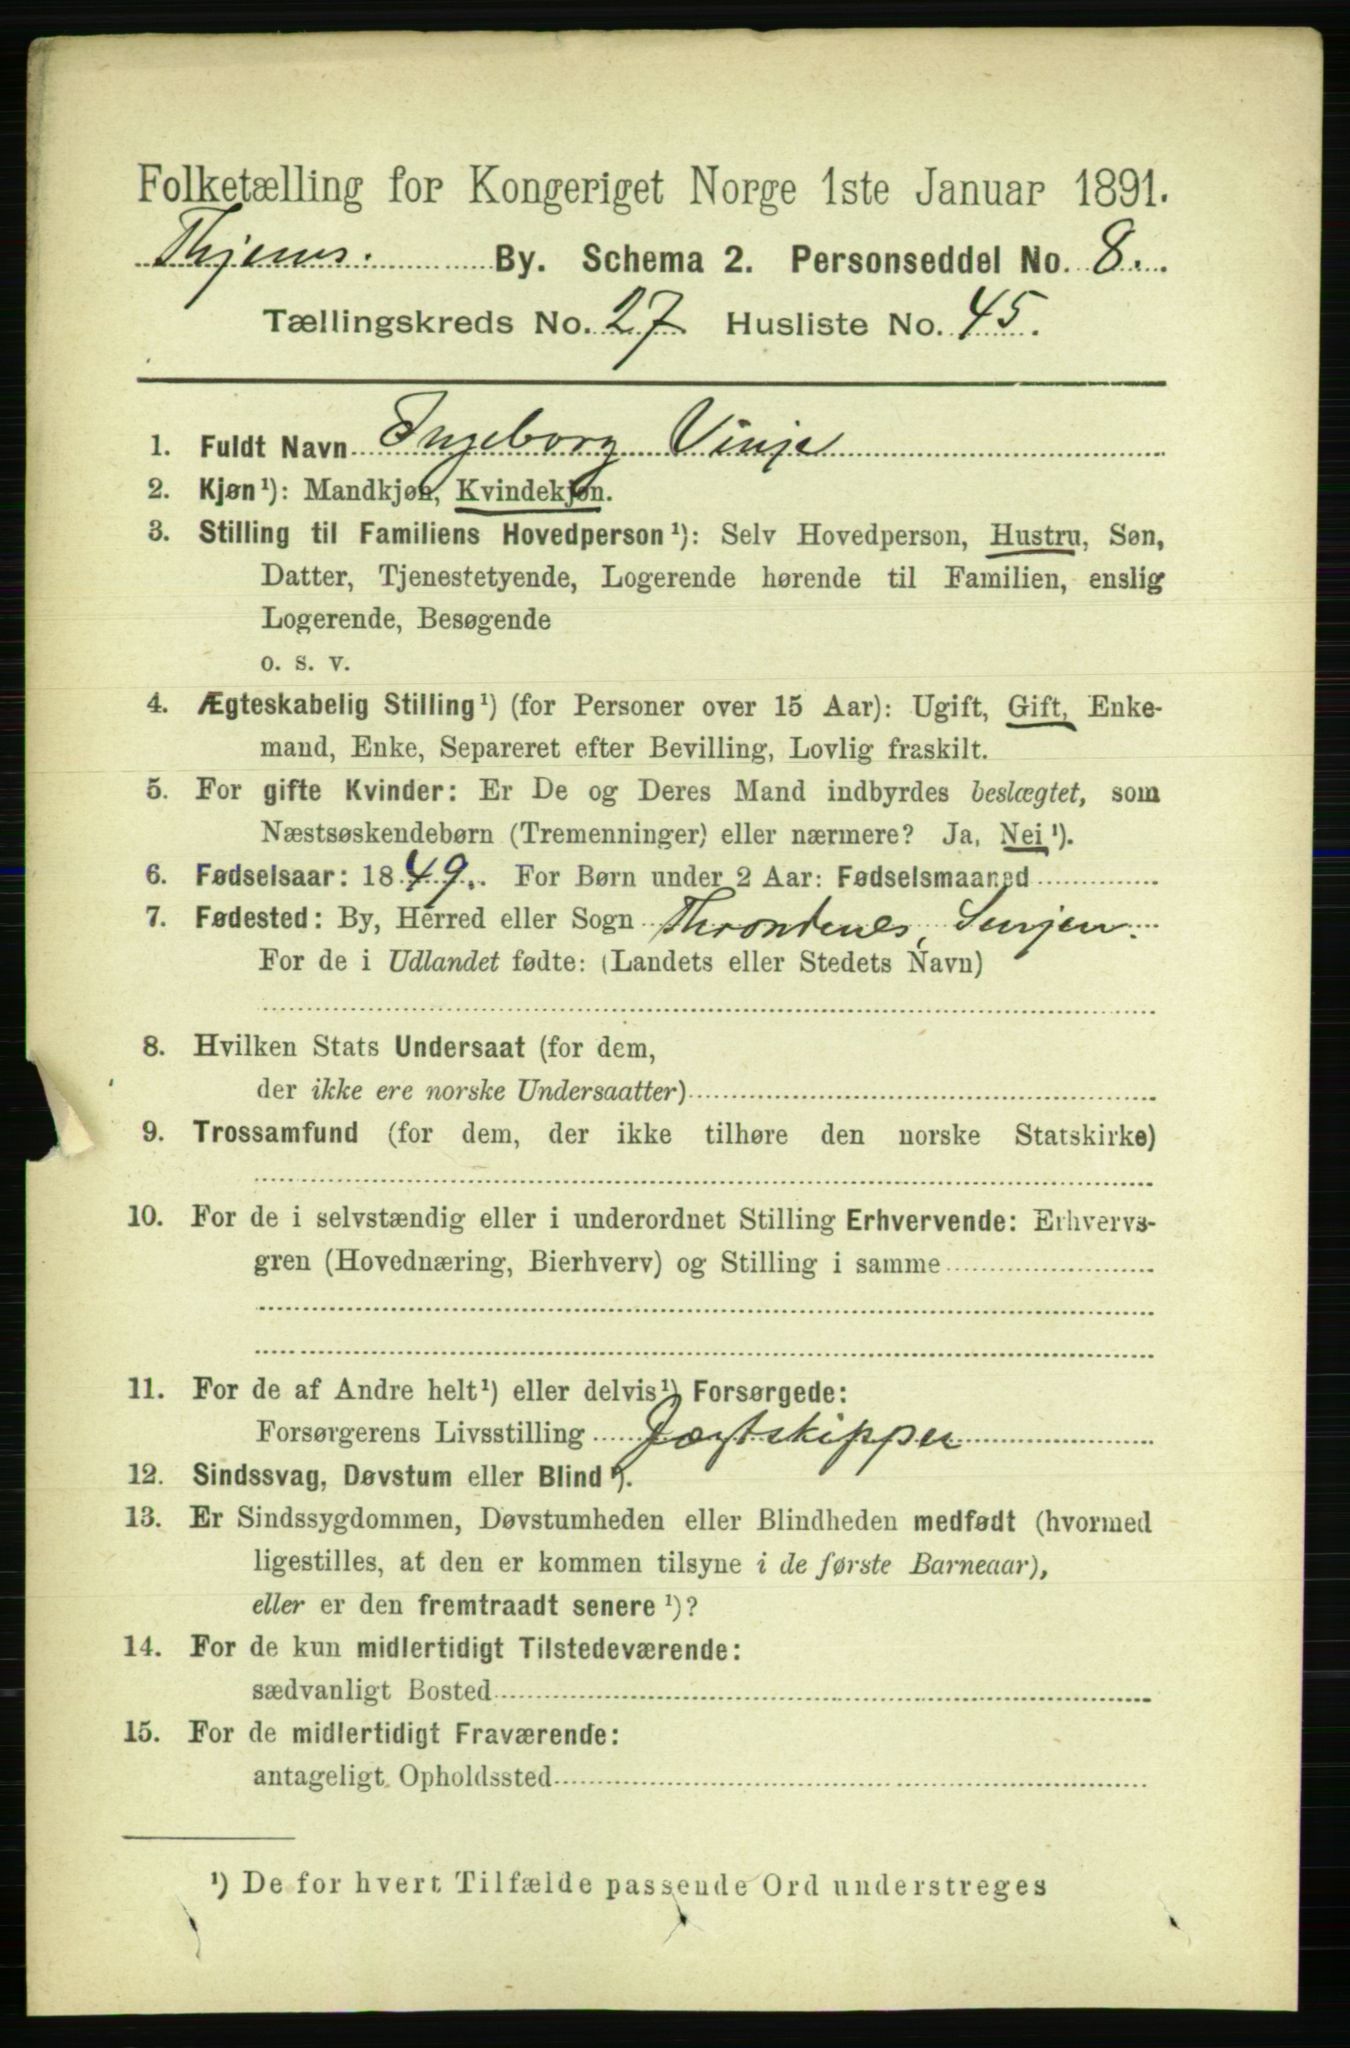 Folketælling for Kongeriget Norge 1ste Januar 1891.
Thjems. By. Schema 2. Personseddel No. 8.
Tællingskreds No. 27 Husliste No. 45.
1. Fuldt Navn Ingeborg Vinje
2. Kjøn¹): Mandkjøn, Kvindekjøn.
3. Stilling til Familiens Hovedperson¹): Selv Hovedperson, Hustru, Søn,
Datter, Tjenestetyende, Logerende hørende til Familien, enslig
Logerende, Besøgende
o. s. v.
4. Ægteskabelig Stilling¹) (for Personer over 15 Aar): Ugift, Gift, Enke-
mand, Enke, Separeret efter Bevilling, Lovlig fraskilt.
5. For gifte Kvinder: Er De og Deres Mand indbyrdes beslægtet, som
Næstsøskendebørn (Tremenninger) eller nærmere? Ja, Nei¹).
6. Fødselsaar: 1849. For Børn under 2 Aar: Fødselsmaaned
7. Fødested: By, Herred eller Sogn Throndenes, Senjen.
For de i Udlandet fødte: (Landets eller Stedets Navn)
8. Hvilken Stats Undersaat (for dem,
der ikke ere norske Undersaatter)
9. Trossamfund (for dem, der ikke tilhøre den norske Statskirke)
10. For de i selvstændig eller i underordnet Stilling Erhvervende: Erhvervs-
gren (Hovednæring, Bierhverv) og Stilling i samme
11. For de af Andre helt¹) eller delvis¹) Forsørgede:
Forsørgerens Livsstilling Jægtskipper
12. Sindssvag, Døvstum eller Blind¹).
13. Er Sindssygdommen, Døvstumheden eller Blindheden medfødt (hvormed
ligestilles, at den er kommen tilsyne i de første Barneaar),
eller er den fremtraadt senere¹)?
14. For de kun midlertidigt Tilstedeværende:
sædvanligt Bosted
15. For de midlertidigt Fraværende:
antageligt Opholdssted
¹) De for hvert Tilfælde passende Ord understreges